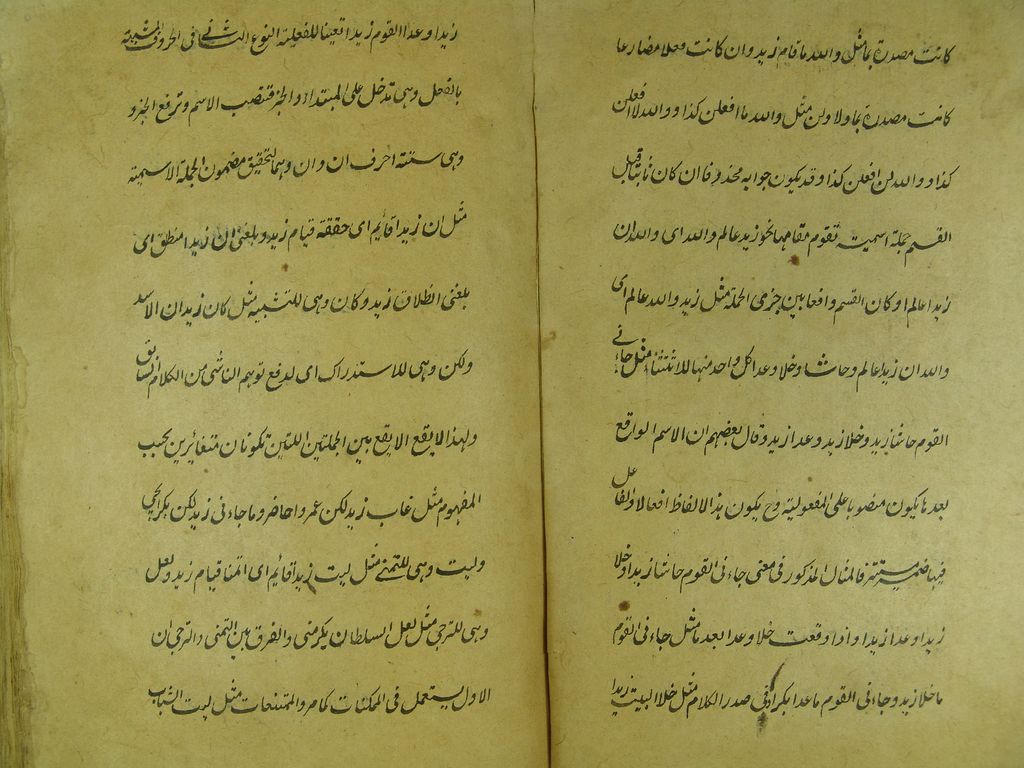 كانت مصدرة بما مثل والله ما قام زيد وان كانت فعلا مضارعا
كانت مصدرة بما ولا ولن مثل والله ما افعلن كذا ووالله لا افعلن
كذا ووالله لن افعلن كذا وقد يكون جوابه محذوفا ان كان ما قبل
القسم جملة اسمية تقوم مقامها نحو زيد عالم والله اى والله ان
زيدا عالم او كان القسم واقعا بين جزءى الجملة مثل زيد والله عالم اى
والله ان زيدا عالم وحاشا وخلا وعدا كل واحد منها للاستثناء مثل جاءنى
القوم حاشا زيد وخلا زيد وعدا زيد وقال بعضهم ان الاسم الواقع
بعدها يكون منصوبا على المفعولية وح يكون هذا الالفاظ افعالا والفاعل
فيها ضمير مستتر فالمثال المذكور فى معنى جاءنى القوم حاشا زيدا وخلا
زيدا وعدا زيدا واذا وقعت خلا وعدا بعد ما مثل جاءنى القوم
ما خلا زيد وجاءنى القوم ما عدا بكرا او فى صدر الكلام مثل خلا البيت زيدا
زيدا وعدا القوم زيدا تعينا للفعلية النوع الثانى فى الحروف المشبهة
بالفعل وهى تدخل على المبتدا والخبر فتنصب الاسم وترفع الخبر و
وهى ستة احرف ان وان وهما لتحقيق مضمون الجملة الاسمية
مثل ان زيدا قايم اى حققة قيام زيد وبلغنى ان زيدا منطلق اى
بلغنى انطلاق زيد وكان وهى للتشبيه مثل كان زيدان الاسد
ولكن وهى للاستدراك اى لدفع توهم الناشى من الكلام السابق
ولهذا لا يقع الا يقع بين الجملتين اللتين تكونان متغائرين بحسب
المفهوم مثل غاب زيد لكن عمروا حاضر وما جاءنى زيد لكن بكرا
وليت وهى للتمنى مثل ليت زيدا قايم اى اتمنا قيام زيد ولعل
وهى للترجى مثل لعل السلطان يكرمنى والفرق بين التمنى والترجى ان
الاول يستعمل فى الممكنات كما مر والممتنعات مثل ليت الشباب